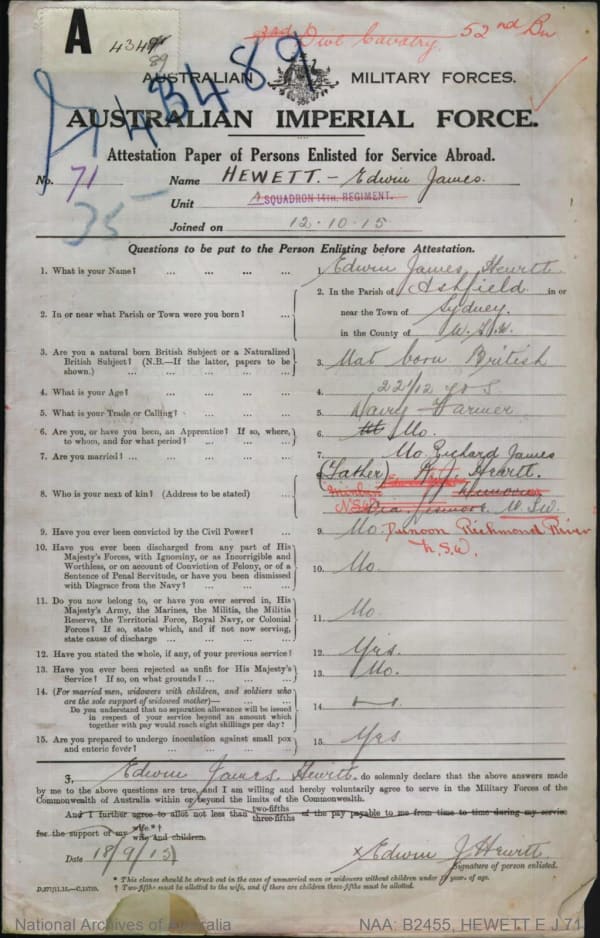 A
434
89
43489
35
2nd Divl Cavalry. 52nd Bn
AUSTRALIAN MILITARY FORCES.
AUSTRALIAN IMPERIAL FORCE.
Attestation Paper of Persons Enlisted for Service Abroad.
No. 71 Name HEWETT. - Edwin James.
Unit A SQUADRON 14TH. REGIMENT.
Joined on 12.10.15
Questions to be put to the Person Enlisting before Attestation.
1. What is your Name? ... ... ... 1. Edwin James Hewitt
2. In or near what Parish or Town were you born? ... 2. In the Parish of Ashfield in or
near the Town of Sydney.
in the County of N.S.W.
3. Are you a natural born British Subject or a Naturalized
British Subject? (N.B.—If the latter, papers to be
shown.) ... ... ... ... 3. Nat born British
4. What is your Age? ... ... ... 4. 22/12 yrs
5. What is your Trade or Calling? ... ... ... 5. Dairy Farmer
6. Are you, or have you been, an Apprentice? If so, where,
to whom, and for what period? ... ... 6. No.
7. Are you married? ... ... ... 7. No. Richard James
8. Who is your next of kin? (Address to be stated) ... (Father) Hewitt.
Via Lismore N.S.W.
Dunoon Richmond River
N.S.W.
9. Have you ever been convicted by the Civil Power? ... 9. No.
10. Have you ever been discharged from any part of His
Majesty's Forces, with Ignominy, or as Incorrigible and
Worthless, or on account of Conviction of Felony, or of a
Sentence of Penal Servitude, or have you been dismissed
with Disgrace from the Navy? ... ... 10. No.
11. Do you now belong to, or have you ever served in, His
Majesty's Army, the Marines, the Militia, the Militia
Reserve, the Territorial Force, Royal Navy, or Colonial
Forces? If so, state which, and if not now serving,
state cause of discharge ... ... ... 11. No.
12. Have you stated the whole, if any, of your previous service? 12. Yes.
13. Have you ever been rejected as unfit for His Majesty's
Service? If so, on what grounds? ... ... 13. No.
14. (For married men, widowers with children, and soldiers who
are the sole support of widowed mother)—
Do you understand that no separation allowance will be issued
in respect of your service beyond an amount which
together with pay would reach eight shillings per day? 14.
15. Are you prepared to undergo inoculation against small pox
and enteric fever? ... ... ... 15. Yes
I, Edwin James Hewitt. do solemnly declare that the above answers made
by me to the above questions are true, and I am willing and hereby voluntarily agree to serve in the Military Forces of the
Commonwealth of Australia within or beyond the limits of the Commonwealth.
And I further agree to allot not less than two-fifths three-fifths of the pay payable to me from time to time during my service
for the support of my wife*† wife and children.
Date 18/9/15 x Edwin J Hewitt
Signature of person enlisted.
* This clause should be struck out in the case of unmarried men or widowers without children under 18 years of age.
† Two-fifths must be allotted to the wife, and if there are children three-fifths must be allotted.
National Archives of Australia NAA: B2455, HEWETT E J 71